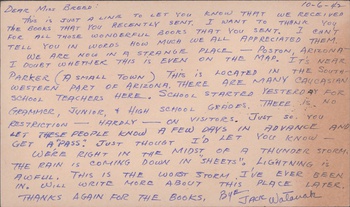 10-6-42
DEAR MISS BREED:
THIS IS JUST A LINE TO LET YOU KNOW THAT WE RECEIVED
THE BOOKS THAT YOU RECENTLY SENT. I WANT TO THANK YOU
FOR ALL THOSE WONDERFUL BOOKS THAT YOU SENT. I CAN'T
TELL YOU IN WORDS HOW MUCH WE ALL APPRECIATED THEM.
WE ARE NOW IN A STRANGE PLACE — POSTON, ARIZONA.
I DOUBT WHETHER THIS IS EVEN ON THE MAP. IT'S NEAR
PARKER (A SMALL TOWN) THIS IS LOCATED IN THE SOUTH-
WESTERN PART OF ARIZONA. THERE ARE MANY CAUCASIAN
SCHOOL TEACHERS HERE. SCHOOL STARTED YESTERDAY FOR
GRAMMER, JUNIOR, & HIGH SCHOOL GRADES. THERE IS NO
RESTRICTION — HARDLY — ON VISITORS. JUST SO YOU
LET THESE PEOPLE KNOW A FEW DAYS IN ADVANCE AND
GET A "PASS". JUST THOUGHT I'D LET YOU KNOW —
WE'RE RIGHT IN THE MIDST OF A THUNDER STORM.
THE RAIN IS COMING DOWN IN "SHEETS". LIGHTNING IS
AWFUL. THIS IS THE WORST STORM I'VE EVER BEEN
IN. WILL WRITE MORE ABOUT THIS PLACE LATER.
THANKS AGAIN FOR THE BOOKS, BYE
JACK Watanabe